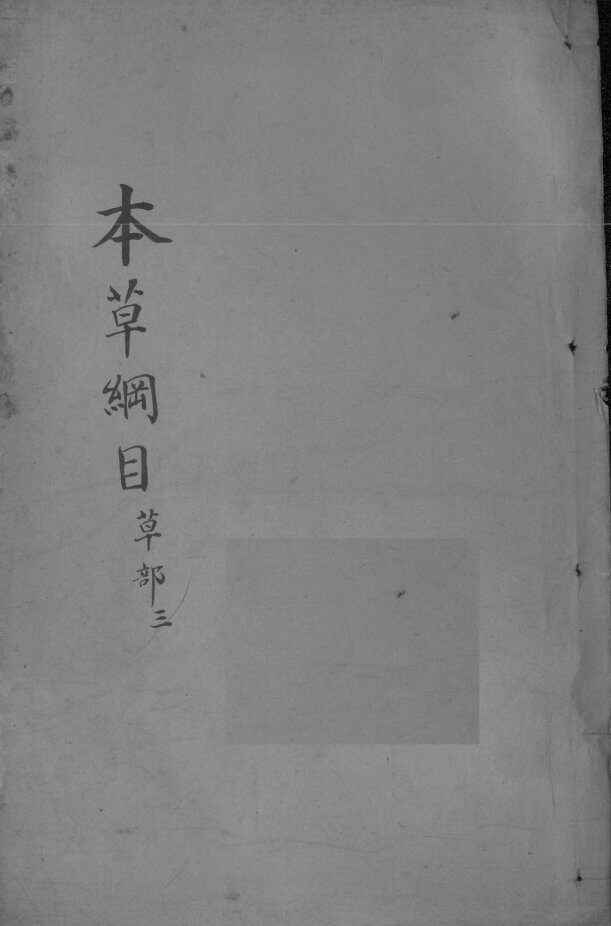 本草綱目
草部三